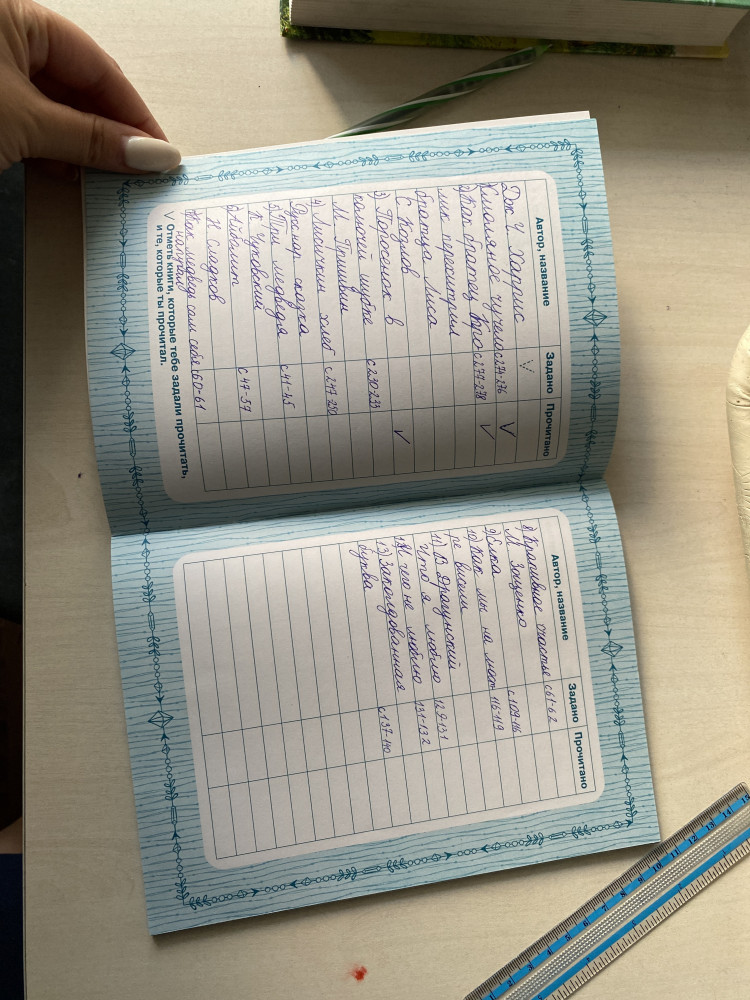 Автор, название Задано Прочитано
Дж. Ч. Харрис V
1) Смоляное чучело с 274-276 V
2) Как братец Кро с 277-278 V
лик перехитрил
братца Лиса
С. Козлов
3) Поросёнок в V
колючей шубке с 230-233
М. Пришвин
4) Лисичкин хлеб с 247-250
Русская сказка
5) Три медведя с 41-45
К. Чуковский
6) Айболит с 47-57
Н. Сладков
7) Как медведь сам себя 60-61
напугал
V Отметь книги, которые тебе задали прочитать,
и те, которые ты прочитал.
Автор, название Задано Прочитано
8) Крапивное счастье с 61-62
М. Зощенко
9) Ёлка с 109-116
10) Как мы на мот 116-119
ре висели
11) В. Драгунский
Что я люблю 129-131
12) И что не люблю 131-132
13) Заколдованная с 137-140
буква
11 12 13 14 15